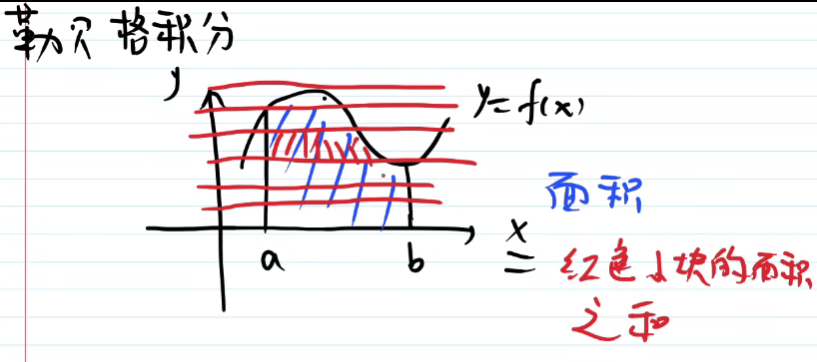 勒贝格积分
y
y=f(x)
面积
x
a
b
= 红色小块的面积
之和